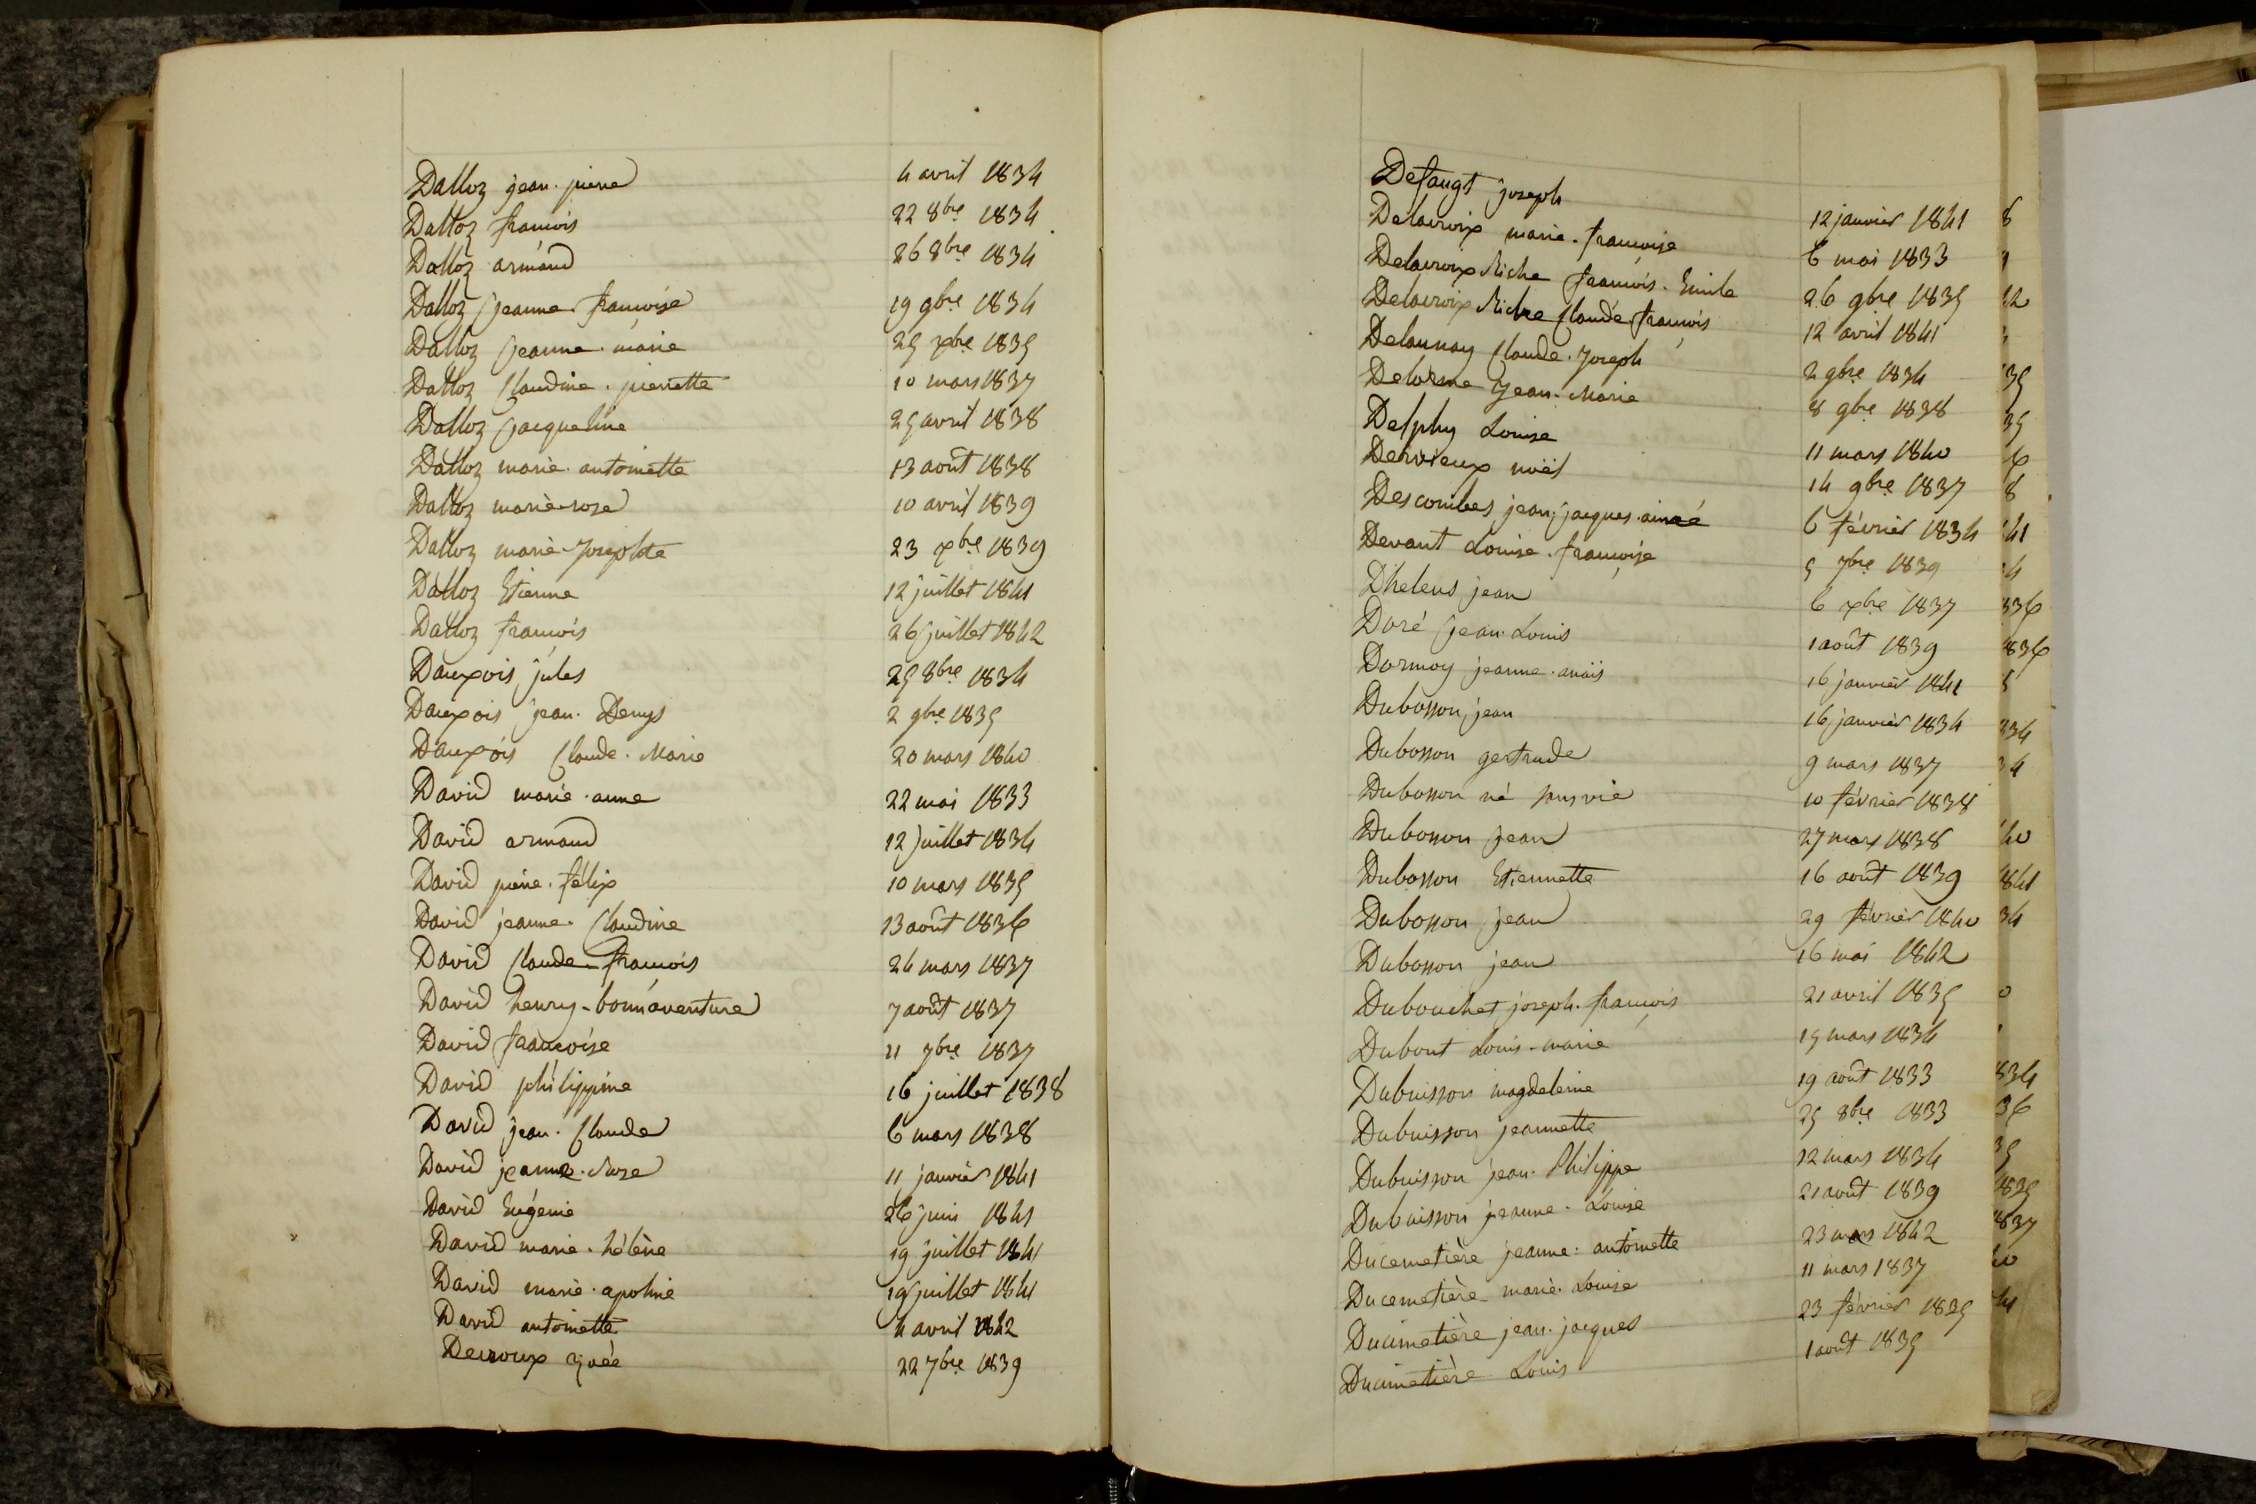 Dalloz jean. pierre 4 avril 1834
Dalloz francois 22 8bre 1834
Dalloz armand 26 8bre 1834
Dalloz jeanne. françoise 19 9bre 1834
Dalloz jeanne. marie 25 xbre 1835
Dalloz Claudine. pierrette 10 mars 1837
Dalloz jacqueline 25 avril 1838
Dalloz marie. antoinette 13 août 1838
Dalloz marie-rose 10 avril 1839
Dalloz marie-Josephte 23 xbre 1839
Dalloz Etienne 12 juillet 1841
Dalloz françois 26 juillet 1842
Dauxois jules 25 8bre 1834
Dauxois jean. Denys 2 9bre 1835
Dauxois Claude. Marie 20 mars 1840
David marie. anne 22 mai 1833
David armand 12 juillet 1834
David pierre. félix 10 mars 1835
David jeanne. Claudine 13 août 1836
David Claude-françois 24 mars 1837
David henry-bonnaventure 7 août 1837
David françoise 11 7bre 1837
David philippine 16 juillet 1838
David jean. Claude 6 mars 1838
David jeanne. Rose 11 janvier 1841
David Eugénie 26 juin 1841
David marie. hélène 19 juillet 1841
David marie. apoline 19 juillet 1841
David antoinette 4 avril 1842
Decroux 22 7bre 1839
Defaugt joseph 12 janvier 1841
Delacroix marie. françoise 6 mai 1833
Delacroix Riche françois. Emile 26 9bre 1835
Delacroix Riche Claude françois 12 avril 1841
Delaunay Claude. Joseph 2 9bre 1834
Delorme Jean. Marie 8 9bre 1838
Delphy Louise 11 mars 1840
Dervieux noël 14 9bre 1837
Descombes jean. jacques. aimé 6 février 1834
Devant Louise. françoise 5 7bre 1839
Dhelens jean 6 xbre 1837
Doré jean. Louis 1 août 1839
Dormoy jeanne. anaïs 16 janvier 1841
Dubosson jean 16 janvier 1834
Dubosson gertrude 9 mars 1837
Dubosson né sans vie 10 février 1838
Dubosson jean 27 mars 1838
Dubosson Etiennette 16 août 1839
Dubosson jean 29 février 1840
Dubosson jean 16 mai 1842
Dubouchet joseph. françois 21 avril 1835
Dubout Louis-marie 15 mars 1834
Dubuisson magdeleine 19 août 1833
Dubuisson jeannette 25 8bre 1833
Dubuisson jean. Philippe 12 mars 1834
Dubuisson jeanne. Louise 21 août 1839
Ducemetière jeanne. antoinette 23 mars 1842
Ducemetière marie. Louise 11 mars 1837
Ducimetière jean. jacques 23 février 1835
Ducimetière Louis 1 août 1835